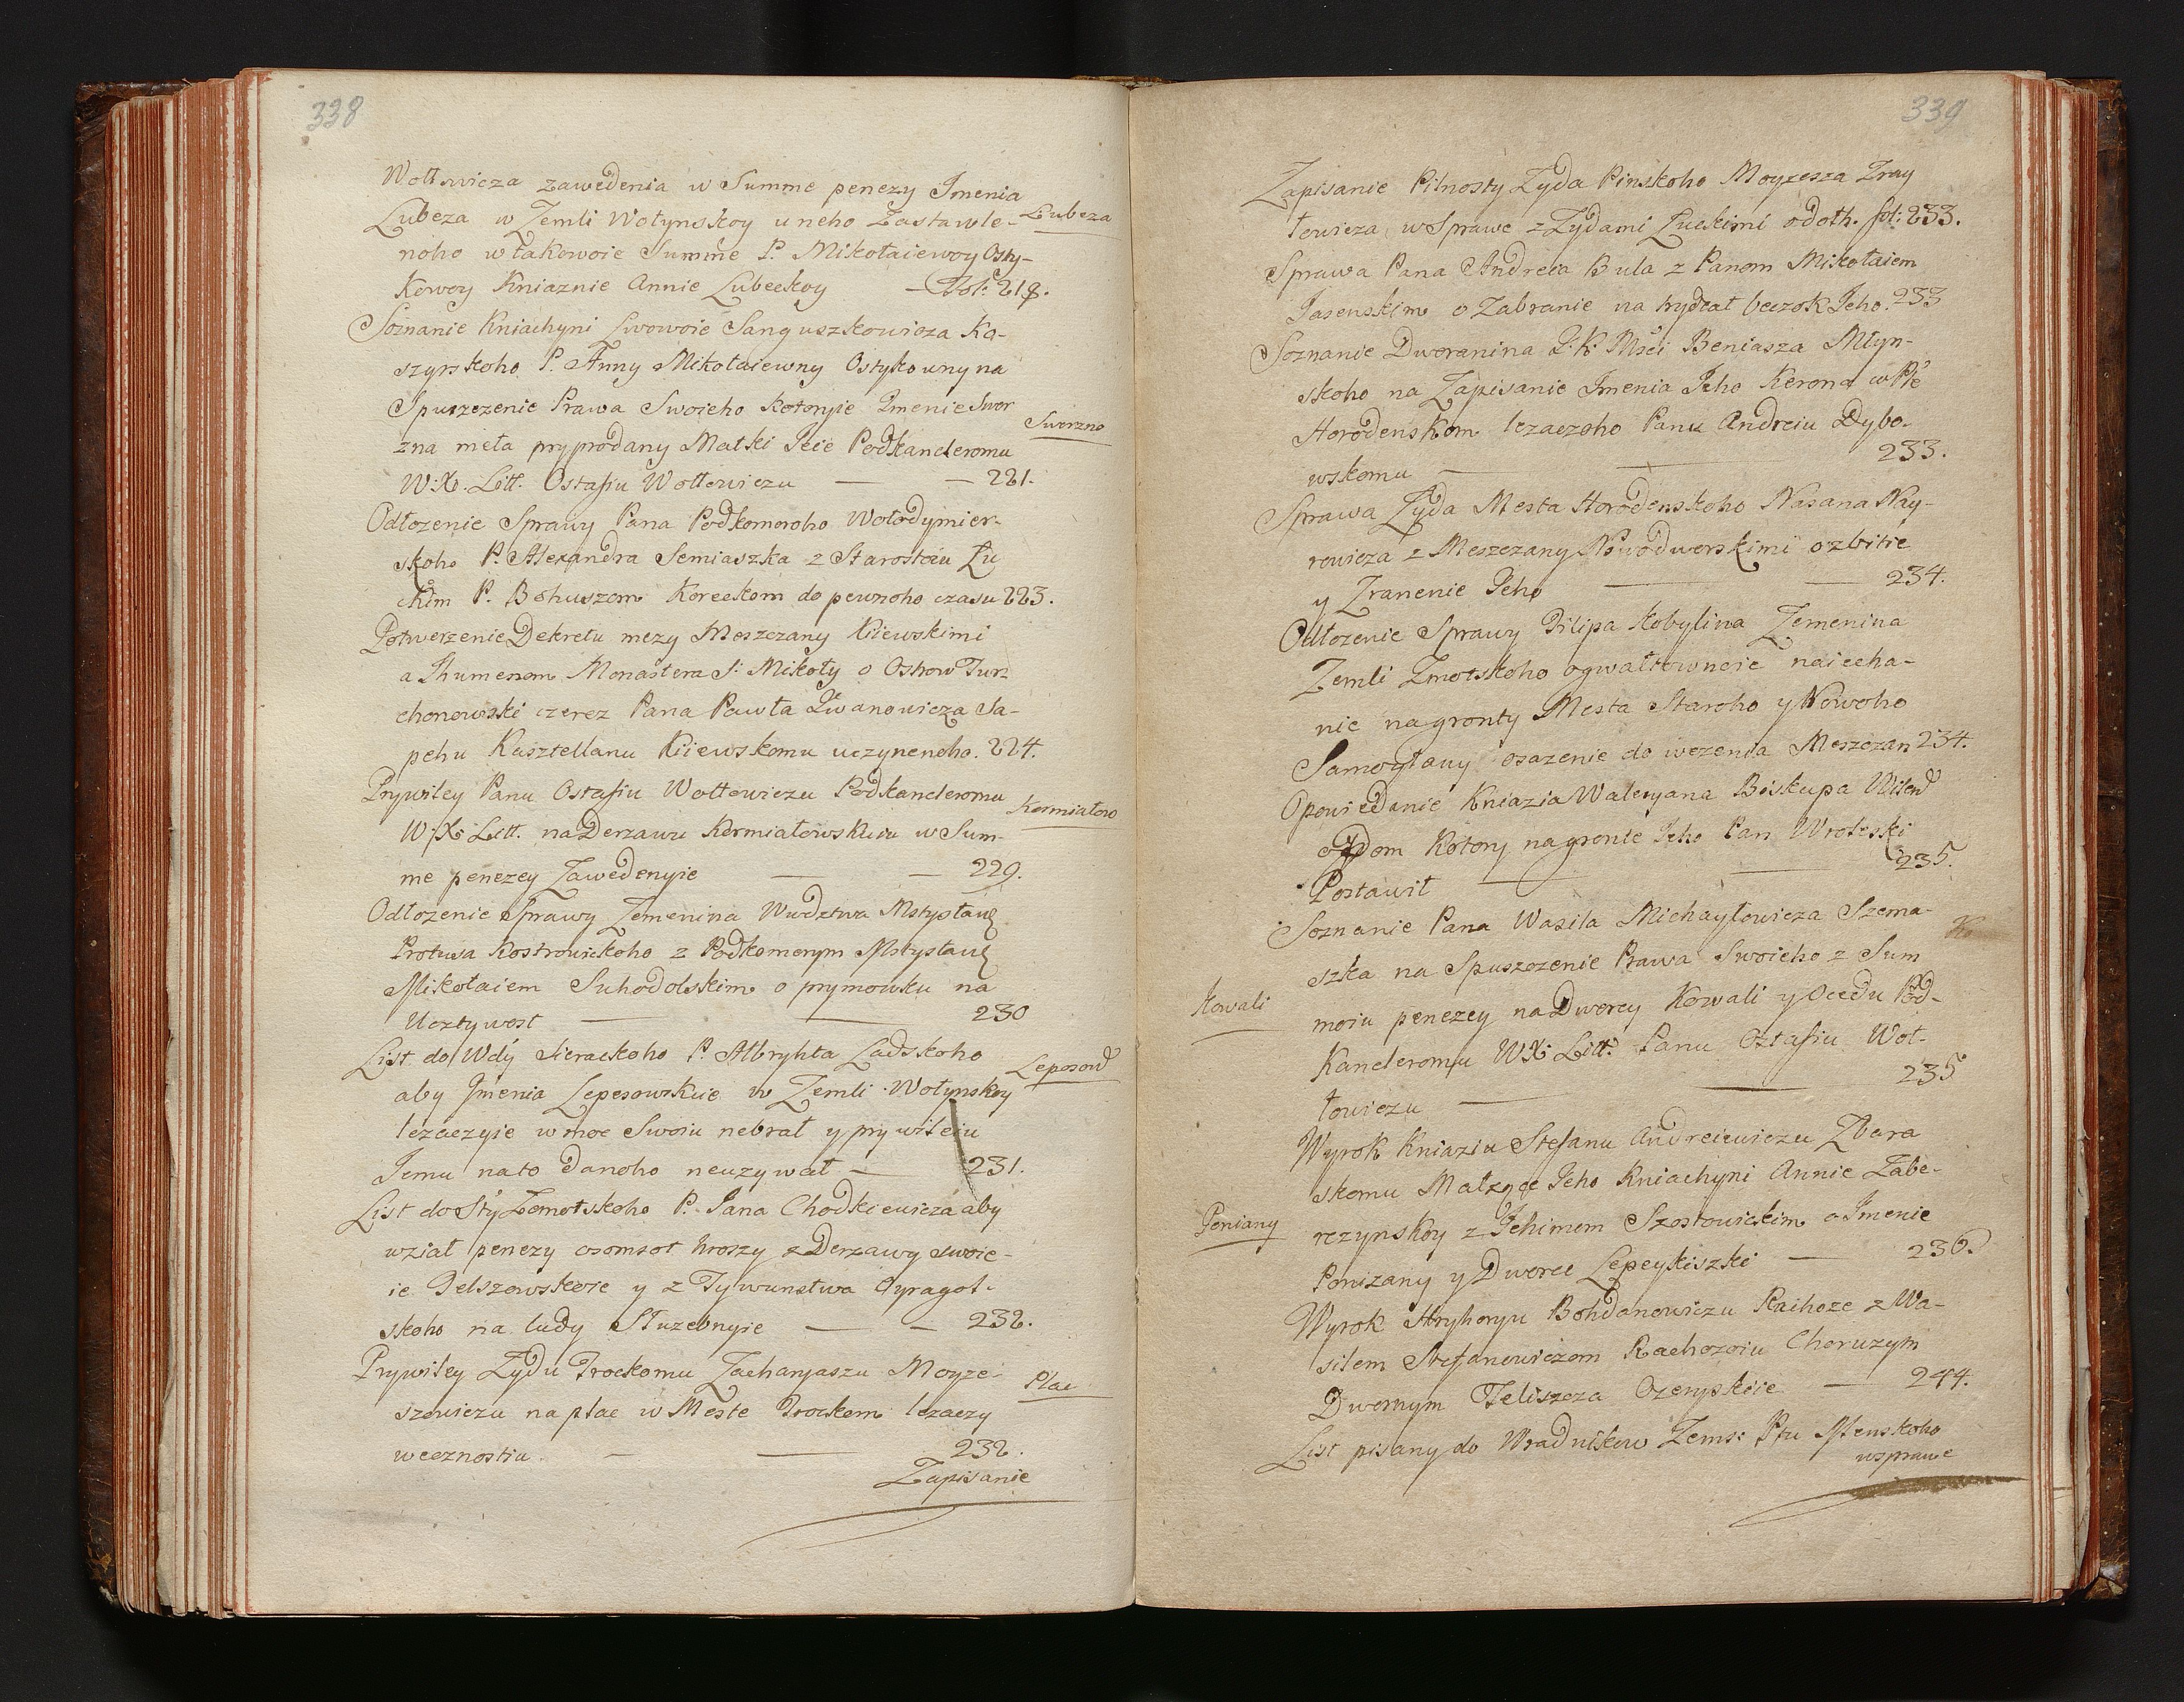 338
Wołłowicza zawedenia w Summe penezy Imenia
Lubeza w Zemli Wołynskoy u neho Zastawle- Lubeza
noho w takowoie Summe P. Mikołaiewoy Osty-
kowoy Kniaznie Annie Lubeckoy — Fol: 218.
Soznanie Kniachyni Lwowoie Sanguszkowicza Ko-
szyrskoho P. Anny Mikołaiewny Ostykowny na
Spuszczenie Prawa Swoieho kotoryie Imenie Swer Swerzno
zna meła pryprodany Matki Jeie Podkancleromu
W: X. Litt. Ostafiu Wołłowiczu — — 221.
Odłozenie Sprawy Pana Podkomoroho Wołodymier-
skoho P. Alexandra Semiaszka z Starostoiu Łu
ckim P. Bohuszom Koreckom do pewnoho czasu 223.
Potwerzenie Dekretu mezy Meszczany Kiiewskimi
a Ihumenom Monastera S: Mikoły o Ostrow Tur
chonowski czerez Pana Pawła Iwanowicza Sa-
pehu Kasztellanu Kiiewskomu uczynenoho. 224.
Prywiley Panu Ostafiu Wołłowiczu Podkancleromu Kormiałow
W: X: Litt. na Derzawu Kormiałowskuiu w Sum-
me penezey Zawedenyie — — 229.
Odłozenie Sprawy Zemenina Wwdztwa Mstysławs
Protasa Kostrowickoho z Podkomorym Mstysławs
Mikołaiem Suhodolskim o prymowku na
Ucztywost — — 230
List do Wdy Sierackoho P. Albryhta Ladskoho Leposow
aby Imenia Lepesowskie w Zemli Wołynskoy
lezaczyie w moc Swoiu nebrał y prywileiu
Jemu nato danoho neuzywał — 231.
List do Sty Zomotskoho P. Jana Chodkiewicza aby
wział penezy osomsot hroszy z Derzawy swoie-
ie Telszowskoie y z Tywunstwa Ayragol-
skoho na ludy Słuzebnyie — — 232.
Prywiley Zydu Trockomu Zacharyaszu Moyze- Plac
szowiczu na płac w Meste Trockom lezaczy
wecznostiu. — — 232.
Zapisanie
339
Zapisanie Pilnosty Zyda Pinskoho Moyzesza Zray
łowicza w Sprawe z Zydami Łuckimi odoth. fol: 233.
Sprawa Pana Andreia Bula z Panom Mikołaiem
Jasenskim o Zabranie na trydzat beczok Jeho. 233
Soznanie Dworanina J. K. Msci Beniasza Młyn-
skoho na Zapisanie Imenia Jeho Kerona w Pte
Horodenskom lezaczoho Panu Andreiu Dybo-
wskomu — — 233.
Sprawa Zyda Mesta Horodenskoho Nasana Nay-
rowicza z Meszczany Nowodworskimi o zbitie
y Zranenie Jeho — — 234.
Odłozenie Sprawy Filipa Kobylina Zemenina
Zemli Zmotskoho o gwałtownoie naiecha-
nie na gronty Mesta Staroho y Nowoho
Samoytauy osazenie do wezenia Meszczan 234.
Opowiedanie Kniazia Waleryana Biskupa Wilen
o Dom Kotory na gronte Jeho Pan Wroteski
Postawił — — 235.
Soznanie Pana Wasila Michayłowicza Szema-
szka na Spuszczenie Prawa Swoieho z Sum
Kowali
moiu penezey na Dworcy Kowali y Ocedu Pod-
Kancleromu W X: Litt: Panu Ostafiu Woł-
łowiczu — — 235
Wyrok Kniaziu Stefanu Andreiewiczu Zbara
skomu Małzące Jeho Kniachyni Annie Zabe-
Poniany
rezynskoy z Jehimom Szostowickim o Imenie
Ponizany y Dworec Lepeykiszki — 236.
Wyrok Hryhoryu Bohdanowiczu Raihoze z Wa-
silem Stefanowiczom Rachozoiu Choruzym
Dwornym Teliszcza Ozeryskoie — 244.
List pisany do Wradnikow Zems: Ptu Menskoho
w sprawe